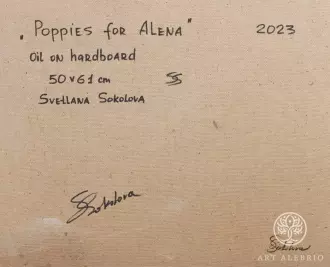 „Poppies for Alena" 2023
Oil on hardboard
50 x 61 cm SS
Svetlana Sokolova
Sokolova
Sokolova
ART ALEBRIO